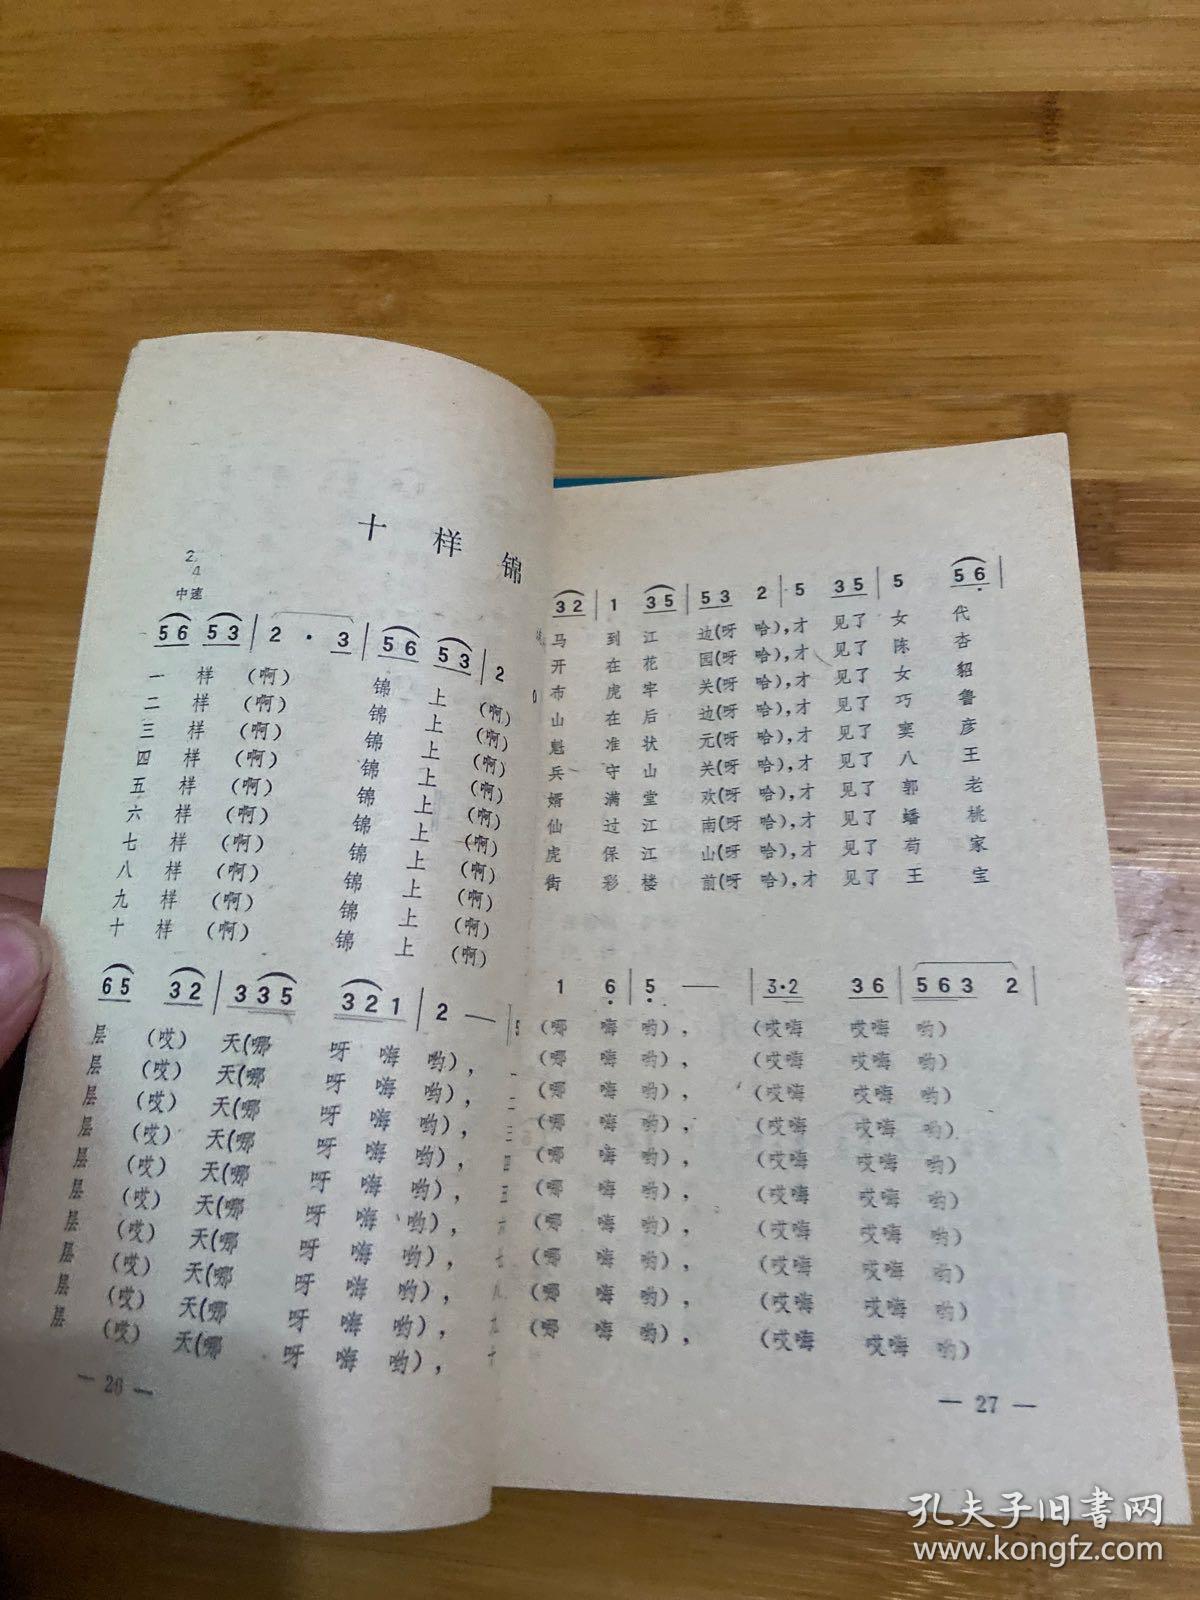 十样锦
2/4
中速
56 53 | 2 · 3 | 56 53 | 2
一 样 (啊) 锦 上 (啊)
二 样 (啊) 锦 上 (啊)
三 样 (啊) 锦 上 (啊)
四 样 (啊) 锦 上 (啊)
五 样 (啊) 锦 上 (啊)
六 样 (啊) 锦 上 (啊)
七 样 (啊) 锦 上 (啊)
八 样 (啊) 锦 上 (啊)
九 样 (啊) 锦 上 (啊)
十 样 (啊) 锦 上 (啊)
65 32 | 335 321 | 2 —
层 (哎) 天(哪 呀 嗨 哟),
层 (哎) 天(哪 呀 嗨 哟), 一
层 (哎) 天(哪 呀 嗨 哟), 二
层 (哎) 天(哪 呀 嗨 哟), 三
层 (哎) 天(哪 呀 嗨 哟), 四
层 (哎) 天(哪 呀 嗨 哟), 五
层 (哎) 天(哪 呀 嗨 哟), 六
层 (哎) 天(哪 呀 嗨 哟), 七
层 (哎) 天(哪 呀 嗨 哟), 八
层 (哎) 天(哪 呀 嗨 哟), 九
十
— 26 —
32 | 1 35 | 53 2 | 5 35 | 5 56 |
马 到 江 边(呀 哈),才 见了 女 代
开 在 花 园(呀 哈),才 见了 陈 杏
布 虎 牢 关(呀 哈),才 见了 女 貂
山 在 后 边(呀 哈),才 见了 巧 鲁
魁 准 状 元(呀 哈),才 见了 窦 彦
兵 守 山 关(呀 哈),才 见了 八 王
婿 满 堂 欢(呀 哈),才 见了 郭 老
仙 过 江 南(呀 哈),才 见了 蟠 桃
虎 保 江 山(呀 哈),才 见了 苟 家
街 彩 楼 前(呀 哈),才 见了 王 宝
1 6 | 5 — | 3·2 36 | 563 2 |
(哪 嗨 哟), (哎嗨 哎嗨 哟)
(哪 嗨 哟), (哎嗨 哎嗨 哟)
(哪 嗨 哟), (哎嗨 哎嗨 哟)
(哪 嗨 哟), (哎嗨 哎嗨 哟)
(哪 嗨 哟), (哎嗨 哎嗨 哟)
(哪 嗨 哟), (哎嗨 哎嗨 哟)
(哪 嗨 哟), (哎嗨 哎嗨 哟)
(哪 嗨 哟), (哎嗨 哎嗨 哟)
(哪 嗨 哟), (哎嗨 哎嗨 哟)
(哪 嗨 哟), (哎嗨 哎嗨 哟)
— 27 —
孔夫子旧书网
www.kongfz.com